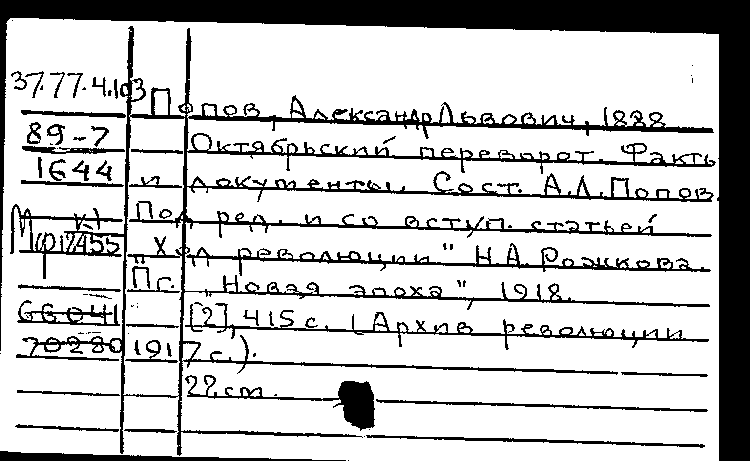 37.77.4.103
Попов, Александр Львович, 1888
89-7
Октябрьский переворот. Факты
1644
и документы. Сост. А.Л.Попов.
Под ред. и со вступ. статьей
К1
Мф12455
„Ход революции" Н.А. Рожкова.
Пг. „Новая эпоха", 1918.
66041
[2], 415 с. (Архив революции
70280
1917 г.).
22 cm.